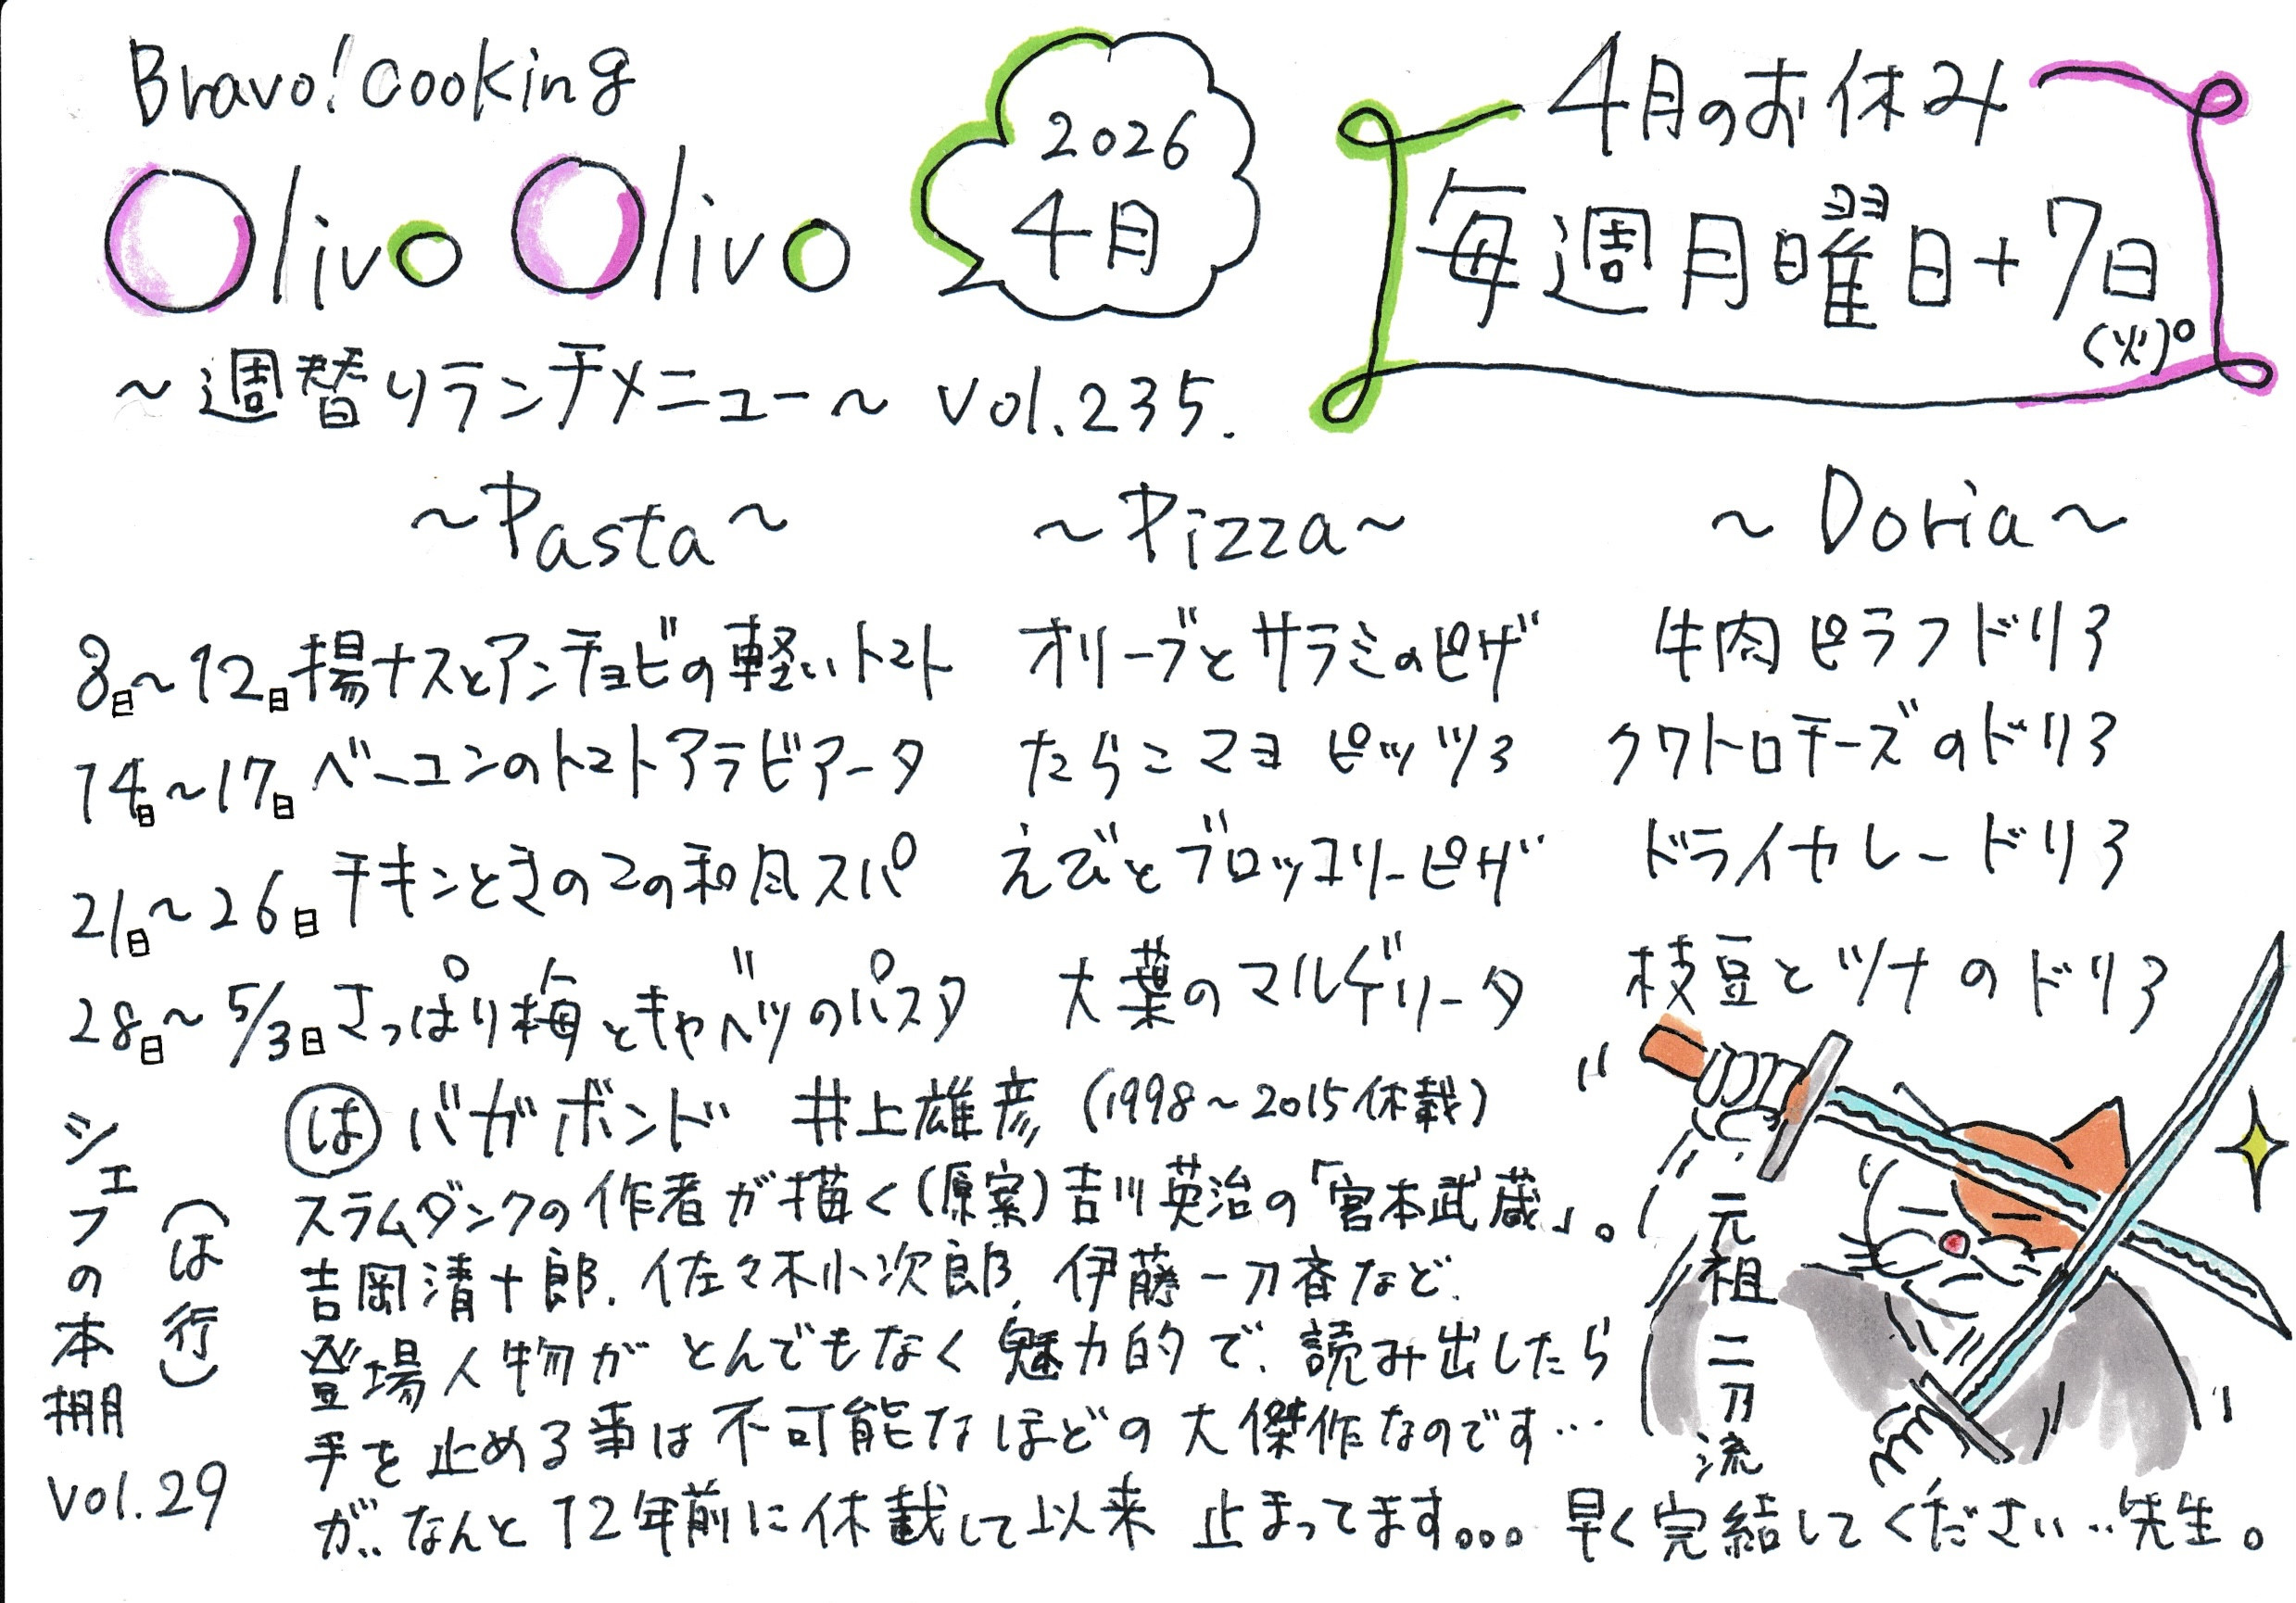 Bravo! cooking
Olivo Olivo
2026
4月
4月のお休み
毎週月曜日+7日
(火)。
~週替りランチメニュー~ vol.235.
~Pasta~ ~Pizza~ ~Doria~
8日~12日 揚ナスとアンチョビの軽いトマト オリーブとサラミのピザ 牛肉ピラフドリア
14日~17日 ベーコンのトマトアラビアータ たらこマヨピッツァ クワトロチーズのドリア
21日~26日 チキンときのこの和風スパ えびとブロッコリーピザ ドライカレードリア
28日~5/3日 さっぱり梅とキャベツのパスタ 大葉のマルゲリータ 枝豆とツナのドリア
シェフの本棚
(は行)
vol.29
(は) バガボンド 井上雄彦 (1998~2015休載)
スラムダンクの作者が描く(原案)吉川英治の「宮本武蔵」。
吉岡清十郎、佐々木小次郎、伊藤一刀斎など、
登場人物がとんでもなく魅力的で、読み出したら
手を止める事は不可能なほどの大傑作なのです…
が、なんと12年前に休載して以来 止まってます。。。 早く完結してください‥先生。
元祖二刀流